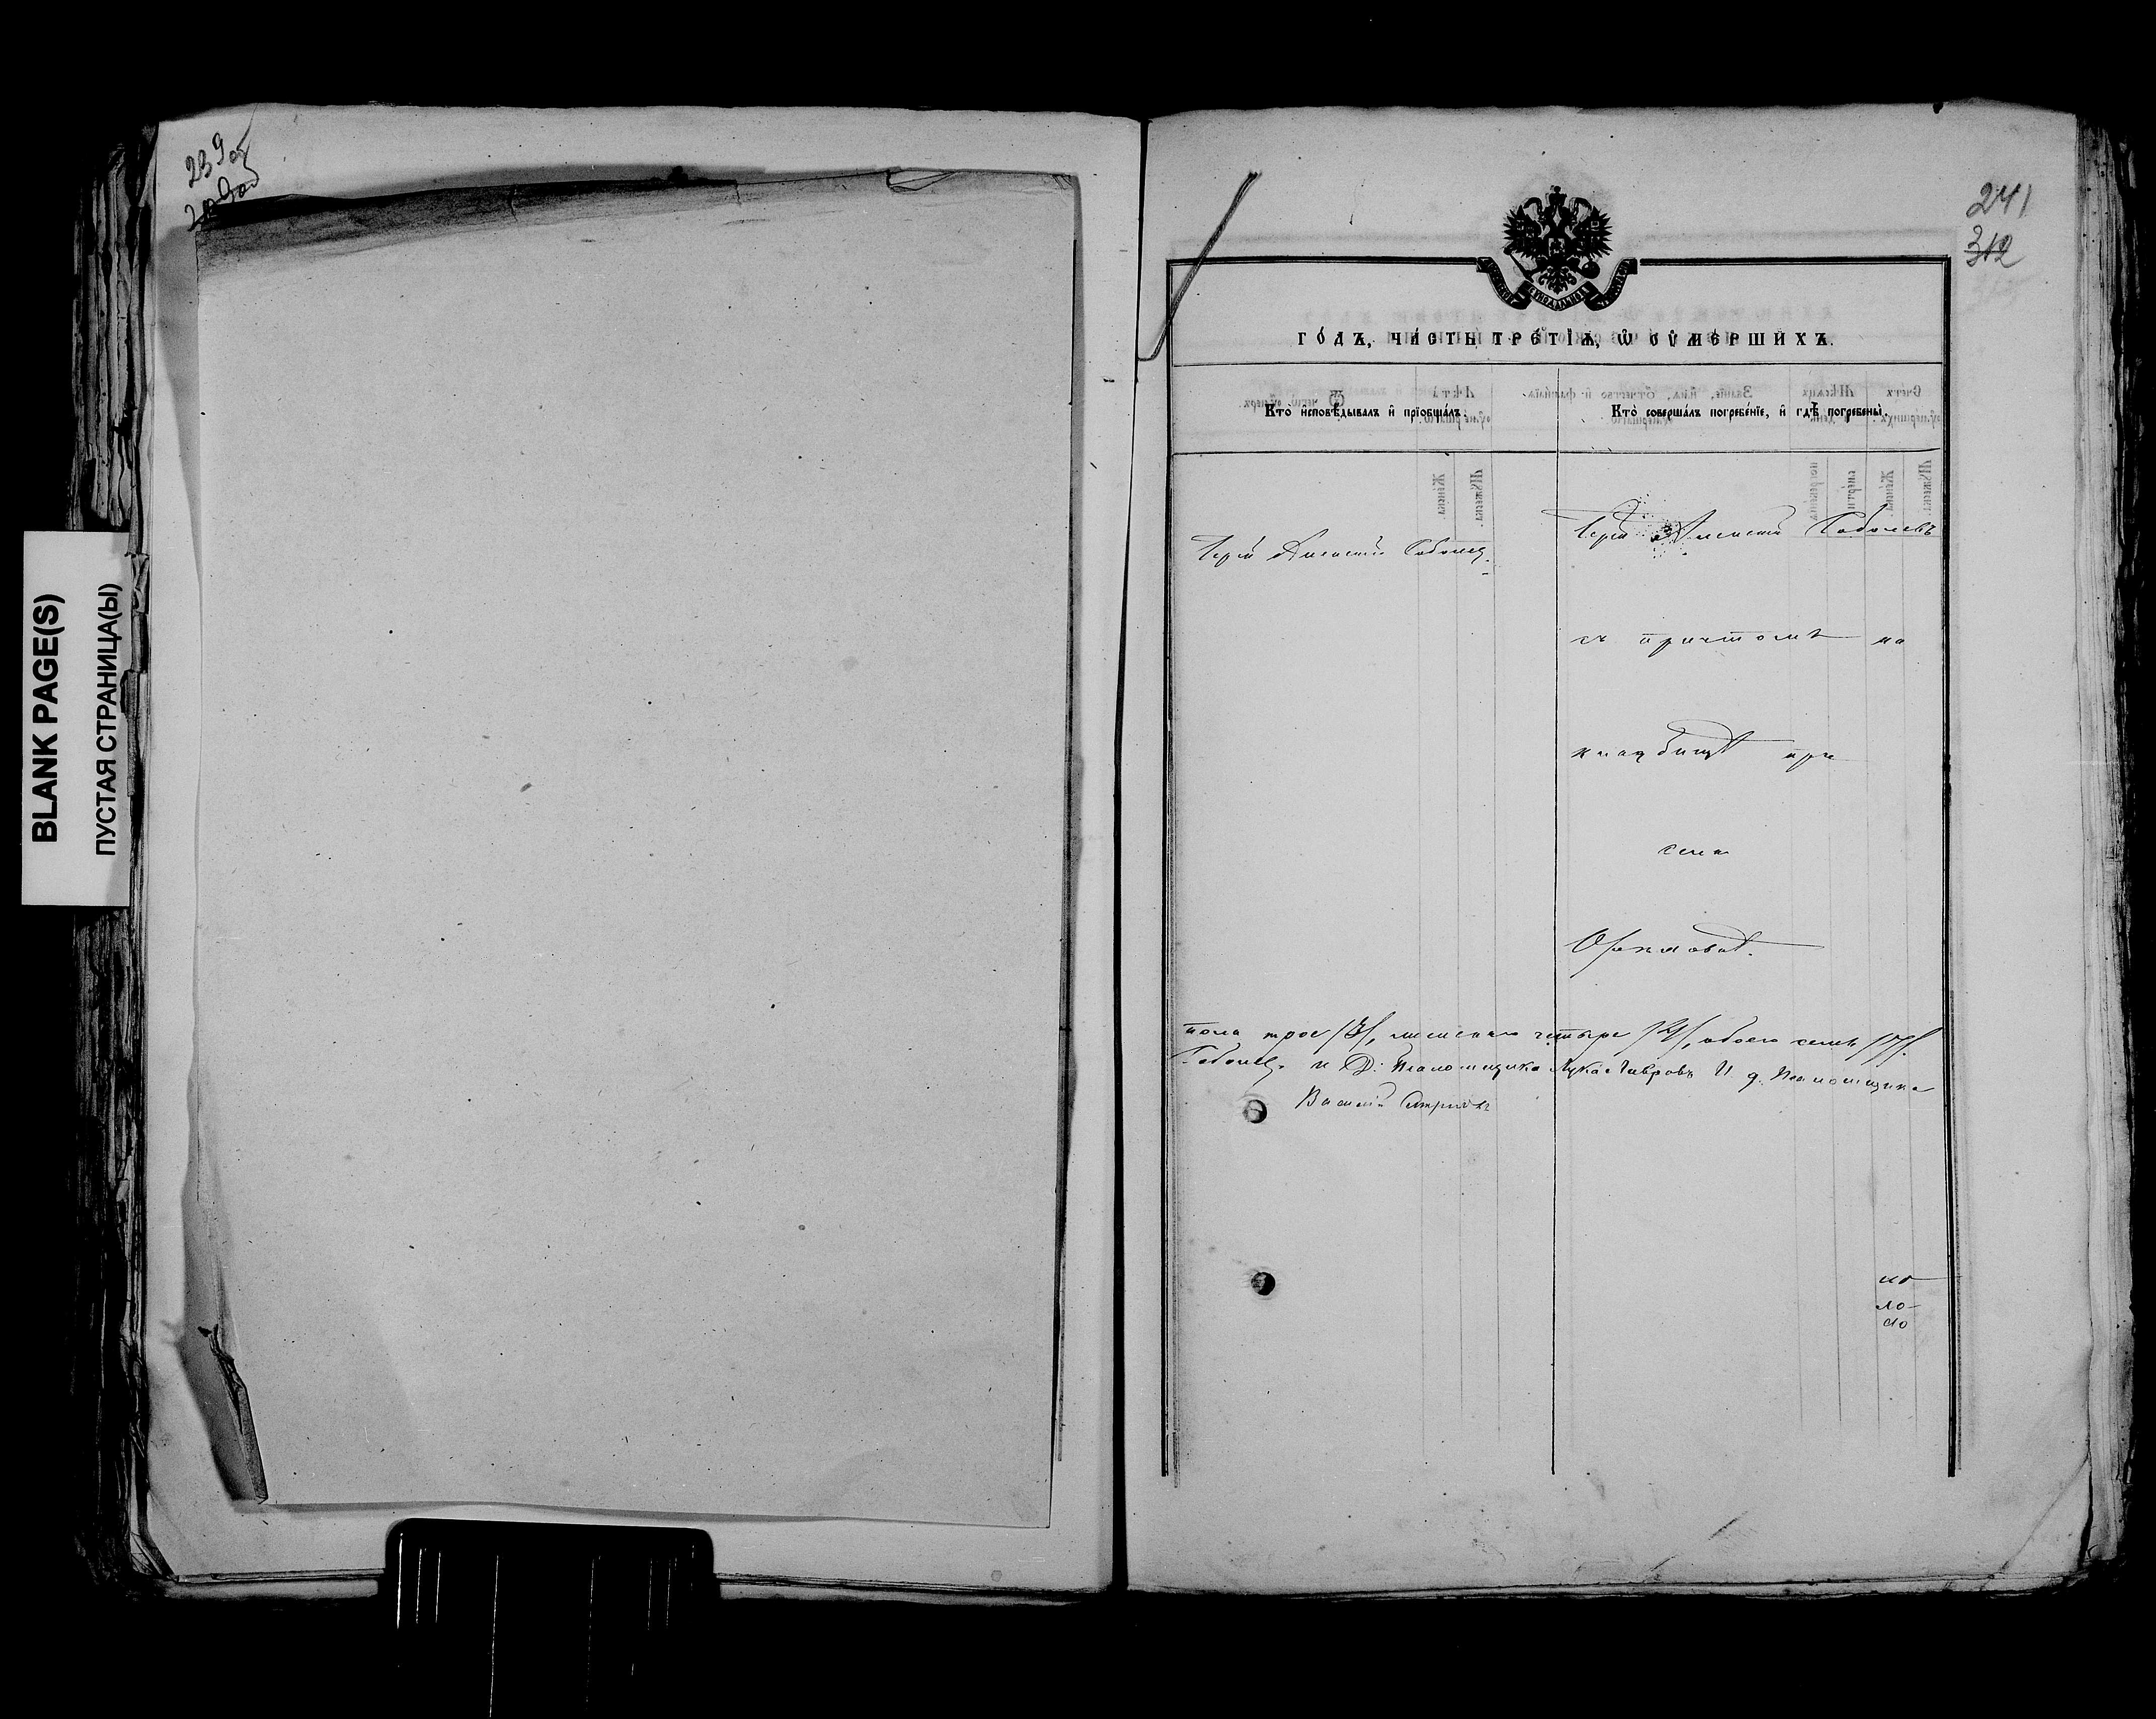 239об
BLANK PAGE(S)
ПУСТАЯ СТРАНИЦА(Ы)
241
312
ГО́ДЪ, ЧА́СТЬ ТРЕ́ТІѦ, Ѡ҆ ОУ҆МЕ́РШИХЪ.
Кто̀ и҆сповѣ́дывалъ и҆ прїѡбща́лъ.
Кто̀ соверша́лъ погребе́нїе, и҆ гдѣ̀ погребены̀.
Іерей Алексій Соболев
Іерей Алексій Соболевъ
съ причтомъ на
кладбищѣ при
селѣ
пола трое /3/, женскаго четыре /4/, обоего семь /7/.
Соболев. и Д. Псаломщика Лука Лавровъ И. д. Псаломщика
Василій
но
ло